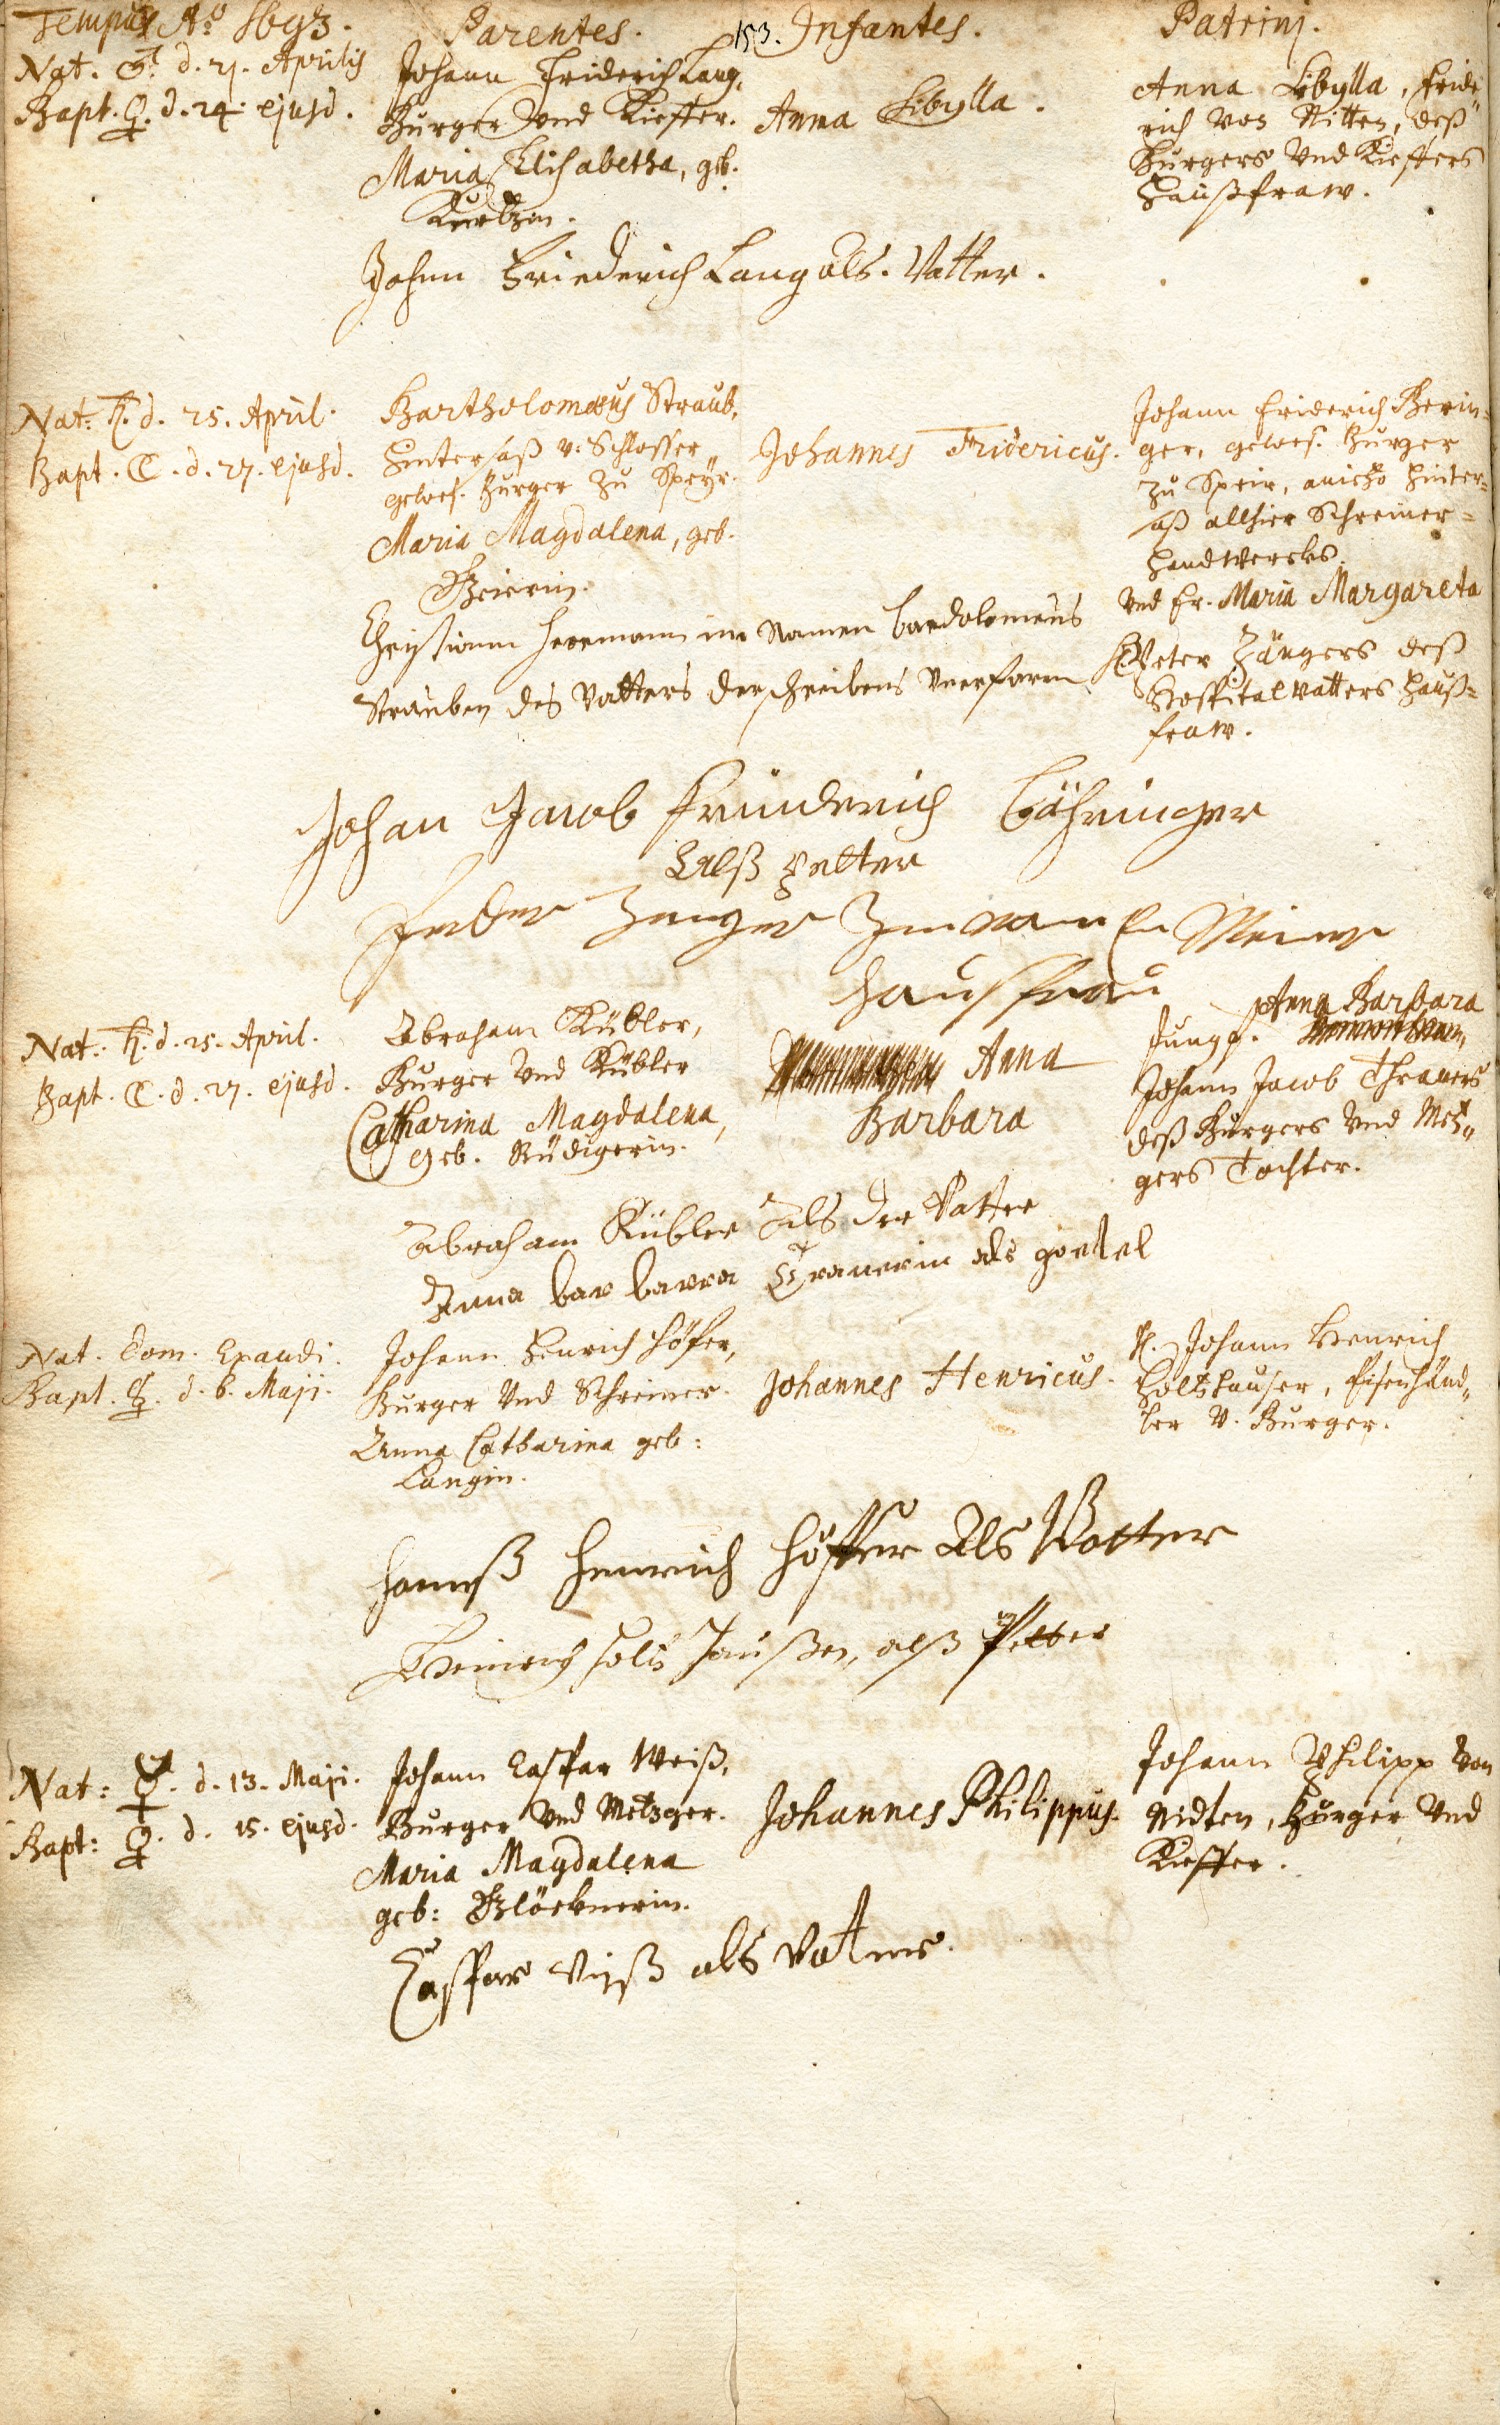 Tempus Aō 1693. Parentes. 153. Infantes. Patrinj.
Nat. ♂. d. 21. Aprilis
Bapt. ♀. d. 24. ejusd.
Johann Friderich Lang,
Burger Vnd Kieffer.
Maria Elisabetha, geb.
Kurtzin.
Anna Sibylla.
Anna Sibylla, Fride„
rich Von Nitten, deß
Burgers Vnd Kieffers
Haußfraw.
Johann Friederich Lang als. Vatter.
Nat: ♄. d. 25. April.
Bapt. ☾. d. 27. ejusd.
Bartholomaeus Straub,
Hintersaß v: Schlosser„
gewes. Burger zu Speyr.
Maria Magdalena, geb.
Beierin.
Johannes Fridericus.
Johann Friderich Berin=
ger, gewes. Burger
zu Speir, anietzo Hinter=
saß allhier Schreiner=
Handwercks.
Vnd Fr. Maria Margareta
Peter Zängers deß
Hospitalvatters Hauß=
fraw.
Christiann Herrmann im Namen bardolomeus
Strauben des Vatters der schreibens Vnerfarn
Johan Jacob Friederich Böhringer
Alß petter
Peder Zenger Im namen Meiner
Hausfrau
Nat: ♄. d. 25. April.
Bapt. ☾. d. 27. ejusd.
Abraham Kübler,
Burger Vnd Kübler
Catharina Magdalena,
geb. Rüdigerin.
Anna
Barbara
Anna Barbara
Jungf.
Johann Jacob Thraners
deß Burgers Vnd Metz„
gers Tochter.
Abraham Kübler Als der Vatter
Anna barbarra Tranerin als goettel
Nat. Dom. Exaudi.
Bapt. ☿. d. 6. Maji.
Johann Henrich Höfer,
Burger Vnd Schreiner.
Anna Catharina geb:
Langin.
Johannes Henricus.
H. Johann Henrich
Holtzhauser, Eisenhänd„
ler V. Burger.
Hanneß Henrich Höffer Als Vatter
Heinrich Holtzhaußen, alß Petter
Nat: ☿. d. 13. Maji.
Bapt: ♀. d. 15. ejusd.
Johann Caspar Weiß,
Burger Vnd Metzger.
Maria Magdalena
geb: Glöcknerin.
Johannes Philippus.
Johann Philipp Von
Nidten, Burger Vnd
Kieffer.
Caspar Viß als Vatter.